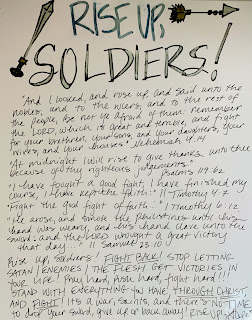 RISE UP,
SOLDIERS!
"And I looked, and rose up, and said unto the
nobles, and to the rulers, and to the rest of
the people, Be not ye afraid of them: remember
the LORD, which is great and terrible, and fight
for your brethren, your sons, and your daughters, your
wives, and your houses." Nehemiah 4:14
"At midnight I will rise to give thanks unto thee
because of thy righteous judgements." Psalms 119:62
"I have fought a good fight, I have finished my
course, I have kept the faith:" II Timothy 4:7
"Fight the good fight of faith..." I Timothy 6:12
"He arose, and smote the Philistines until his
hand was weary, and his hand clave unto the
sword: and the LORD wrought a great victory
that day..." II Samuel 23:10
Rise up, soldiers! FIGHT BACK! STOP LETTING
SATAN/ENEMIES/THE FLESH GET VICTORIES IN
YOUR LIFE! Pray hard, push hard, fight hard!!!
STAND WITH EVERYTHING YOU HAVE THROUGH CHRIST,
AND FIGHT! It's a war, saints, and there's NO TIME
to drop your sword, give up or back away! RISE UP!